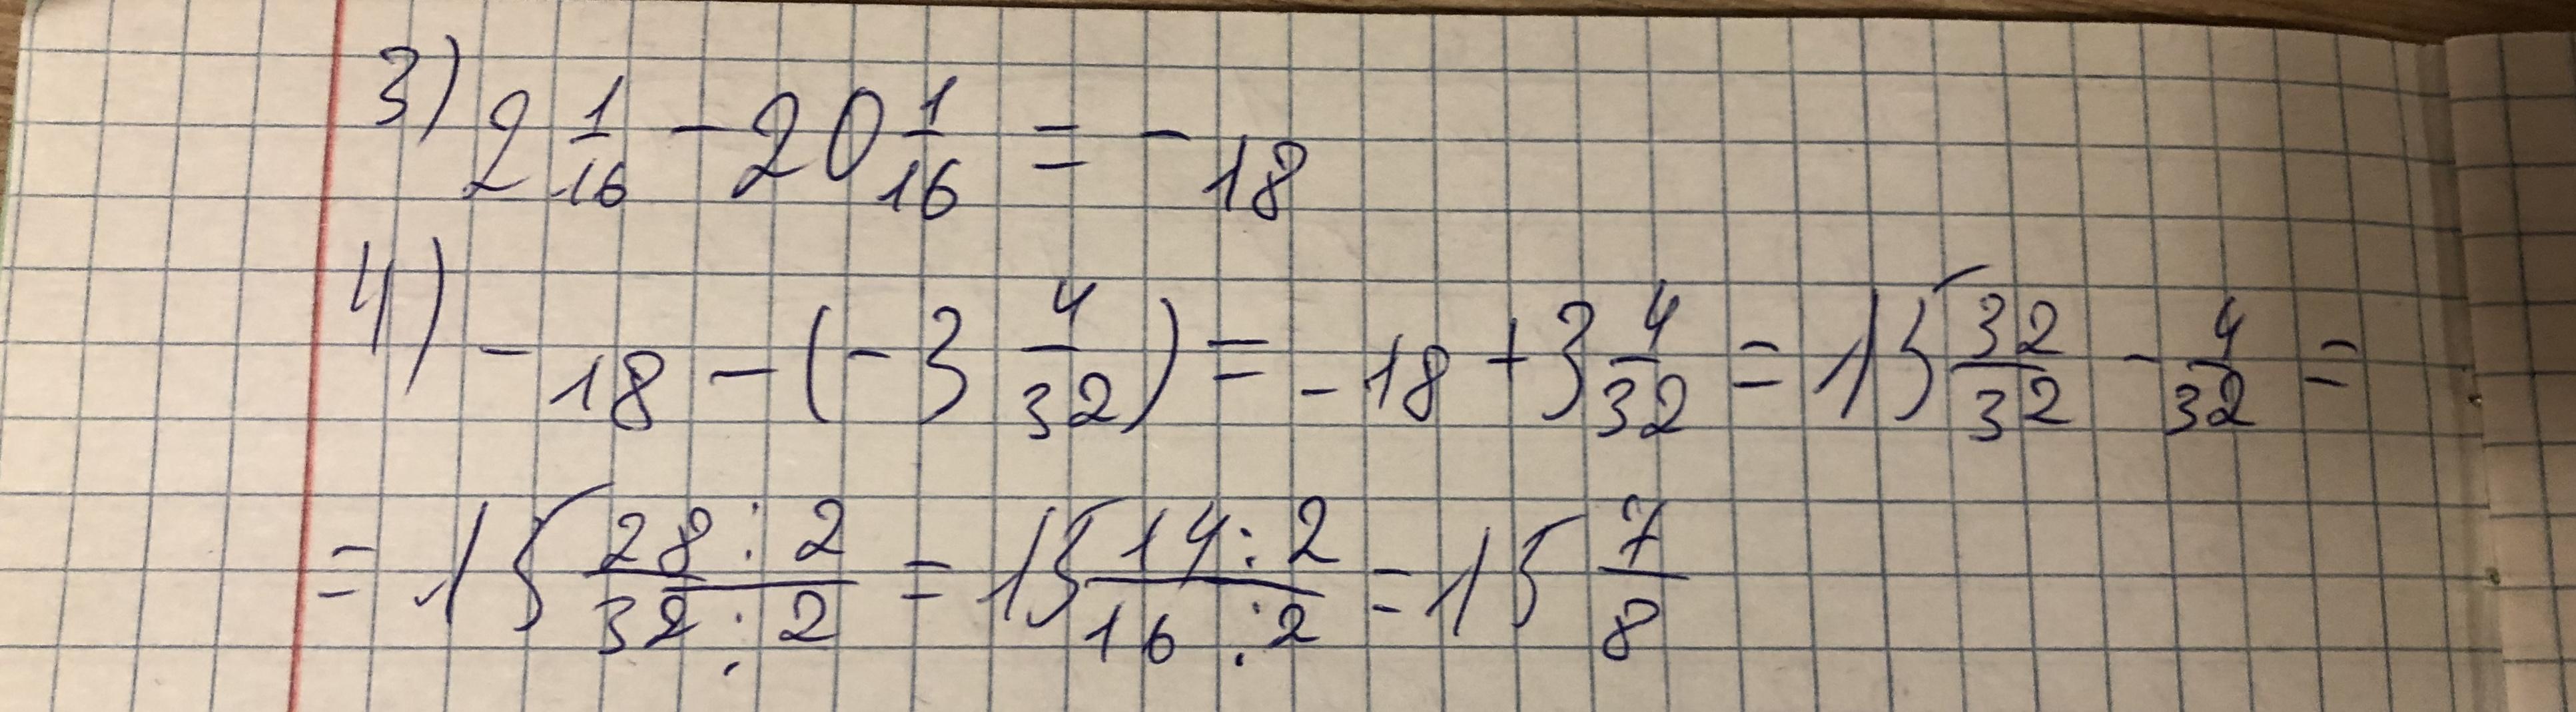 3) 2 1/16 - 20 1/16 = - 18
4) - 18 - (- 3 4/32) = - 18 + 3 4/32 = 15 32/32 - 4/32 =
= 15 28:2/32:2 = 15 14:2/16:2 = 15 7/8